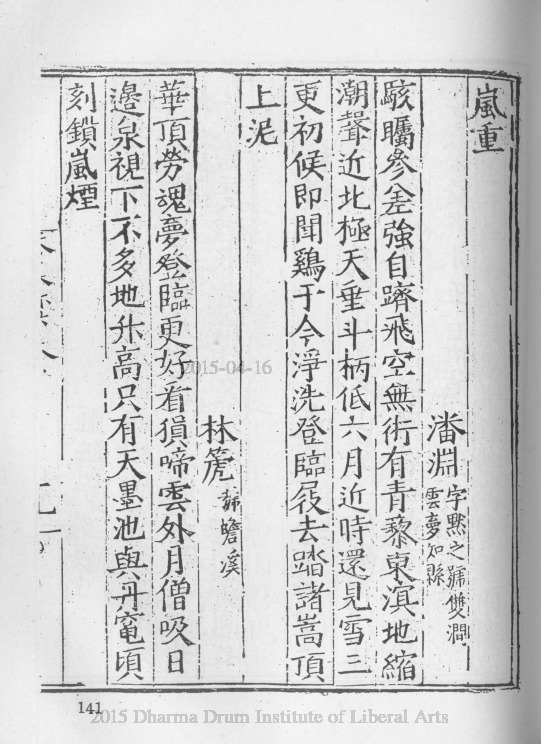 嵐重
潘淵 字㸃之號雙澗
雲夢知縣
駭矚參差強自躋飛空無術有青藜東溟地縮
潮聲近北極天垂斗柄低六月近時還見雪三
更初候即聞鷄于今淨洗登臨屐去踏諸嵩頂
上泥
林箎 號蟾溪
華頂勞魂夢登臨更好看猿啼雲外月僧吸日
邊泉視下不多地升高只有天墨池與丹竃頃
刻鎖嵐煙
141
2015-04-16
2015 Dharma Drum Institute of Liberal Arts